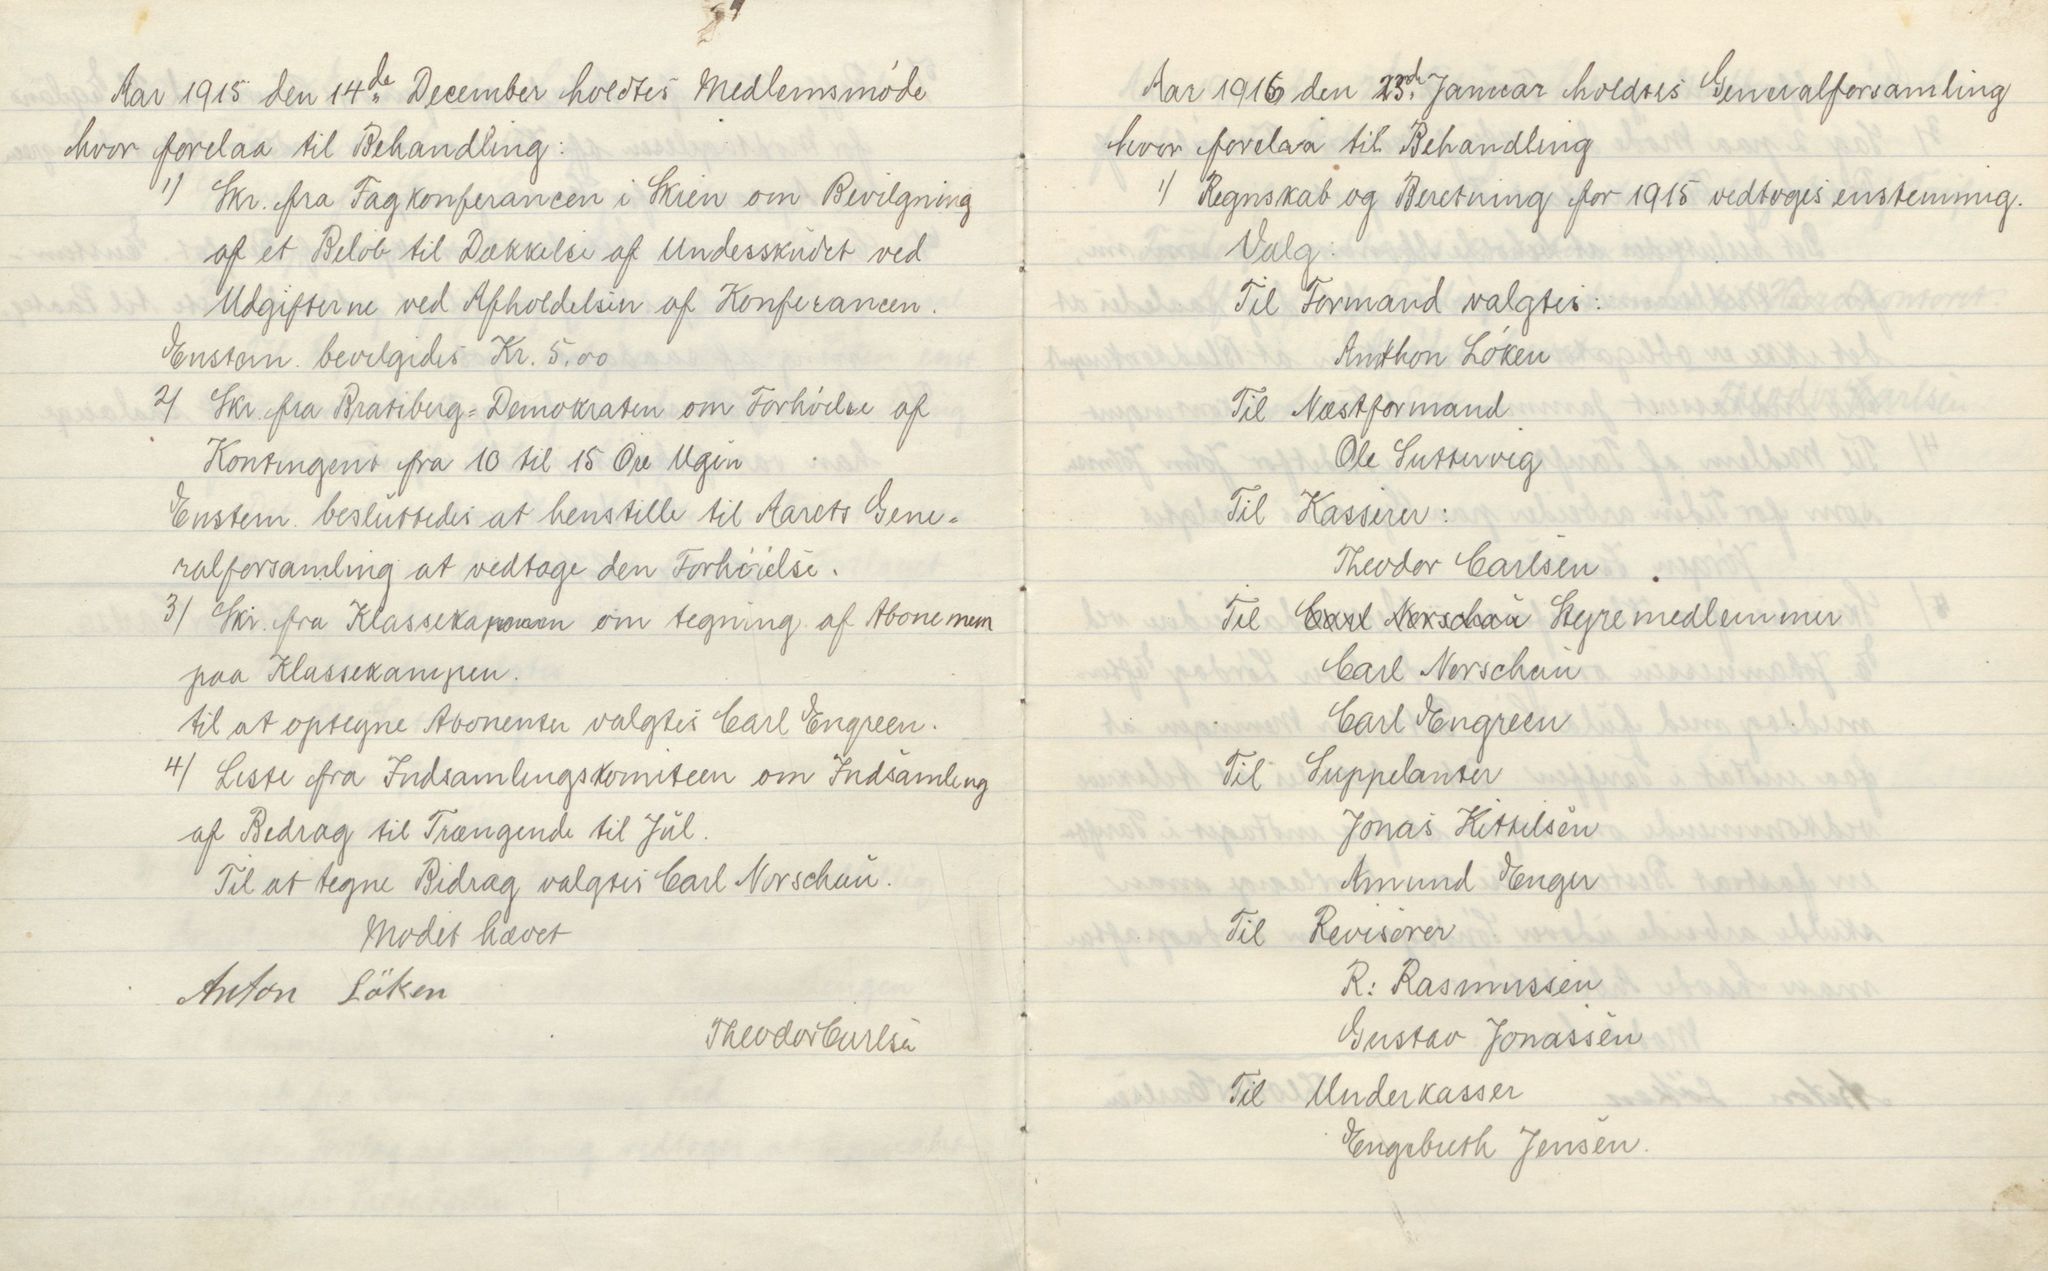 Aar 1915 den 14de December holdtes Medlemsmöde
hvor forelaa til Behandling:
1) Skr. fra Fagkonferancen i Skien om Bevilgning
af et Belöb til Dækkelse af Undesskudet ved
Udgifterne ved Afholdelsen af Konferancen.
Enstem. bevilgides Kr. 5,00
2) Skr. fra Bratsberg-Demokraten om Forhöielse af
Kontingent fra 10 til 15 Öre Ugen
Enstem. besluttedes at henstille til Aarets Gene-
ralforsamling at vedtage den Forhöielse.
3) Skr. fra Klassekampen om tegning af Abonemem
paa Klassekampen.
til at optegne Abonenter valgtes Carl Engreen.
4) Liste fra Indsamlingskomiteen om Indsamling
af Bedrag til Trængende til Jul.
Til at tegne Bidrag valgtes Carl Norschau.
Mödet hævet
Anton Löken
Theodor Carlsen
Aar 1916 den 23de Januar holdtes Generalforsamling
hvor forelaa til Behandling
1) Regnskab og Beretning for 1915 vedtoges enstemmig.
Valg:
Til Formand valgtes:
Anthon Löken
Til Næstformand
Ole Suttervig
Til Kasserer:
Theodor Carlsen
Til Carl Norschau Styremedlemmer
Carl Norschau
Carl Engreen
Til Suppelanter
Jonas Kittilsen
Amund Enger
Til Revisorer
R: Rasmussen
Gustav Jonassen
Til Underkasser
Engebreth Jensen.